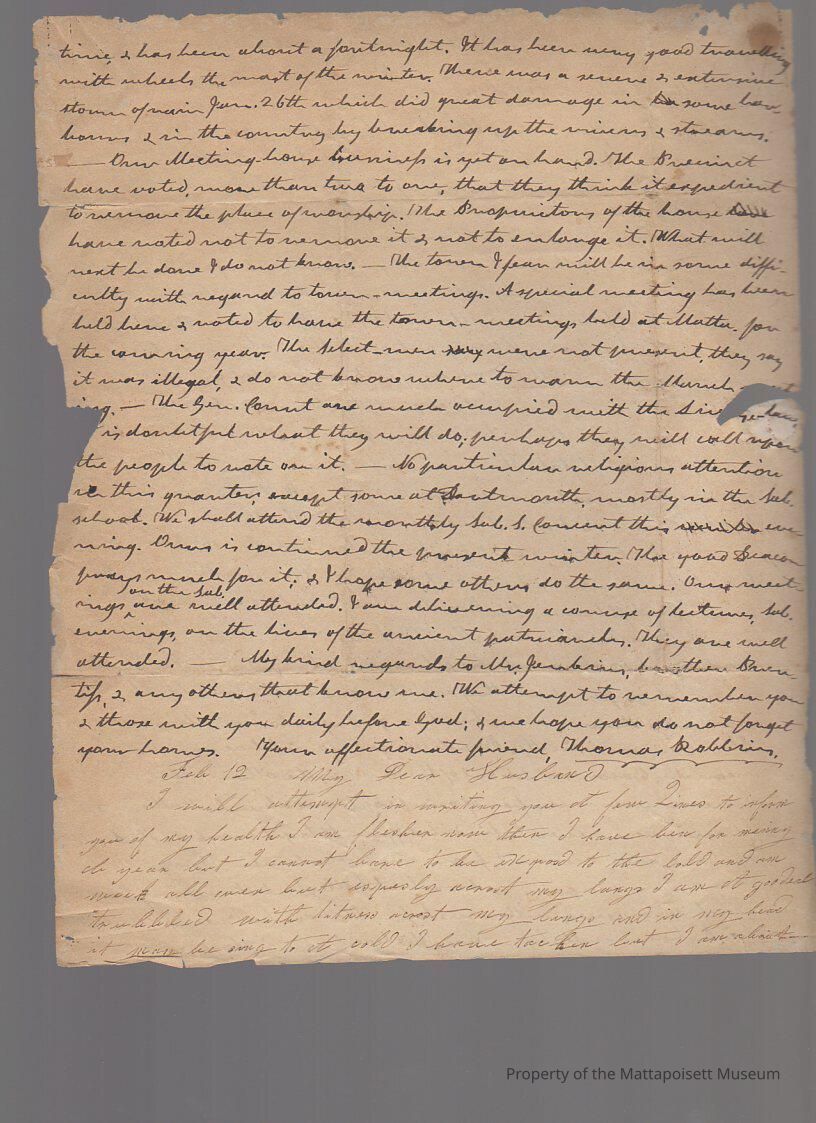 time, & has been about a fortnight. It has been very good travelling
with wheels the most of the winter. There was a severe & extensive
storm of rain Jan. 26th which did great damage in some har-
bours & in the country by breaking up the rivers & streams.
— Our Meeting-house business is yet on hand. The Precinct
have voted, more than two to one, that they think it expedient
to remove the place of worship. The Proprietors of the house
have voted not to remove it & not to enlarge it. What will
next be done I do not know. — The town I fear will be in some diffi-
culty with regard to town-meetings. A special meeting has been
held here & voted to have the town-meetings held at Matta. for
the coming year. The Select-men were not present, they say
it was illegal, & do not know where to warn the March
ing. — The Gen. Court are much occupied with the
is doubtful what they will do; perhaps they will call upon
the people to vote on it. — No particular religious attention
in this quarter, except some at Dartmouth, mostly in the Sab.
school. We shall attend the monthly Sab. S. Concert this eve-
ning. Ours is continued the present winter. The good Deacon
prays much for it; & I hope some others do the same. Our meet-
ings on the Sab. are well attended. I am delivering a course of lectures, Sab.
evenings, on the lives of the ancient patriarchs. They are well
attended. — My kind regards to Mr. Jenkins, brother Pren-
tiss, & any others that know me. We attempt to remember you
& those with you daily before God; & we hope you do not forget
your homes. Your affectionate friend, Thomas Robbins.
Feb 12 My Dear Husband
I will attempt in writing you at few Lines to inform
you of my health I am flesher now then I have ben for meny
at year but I cannot bare to be exposd to the cold and am
all over but espesly acrost my lungs I am at good eal
trubbled with titness acrost my lungs and in my head
it may be oing to at cold I have tacken but I am about
Property of the Mattapoisett Museum